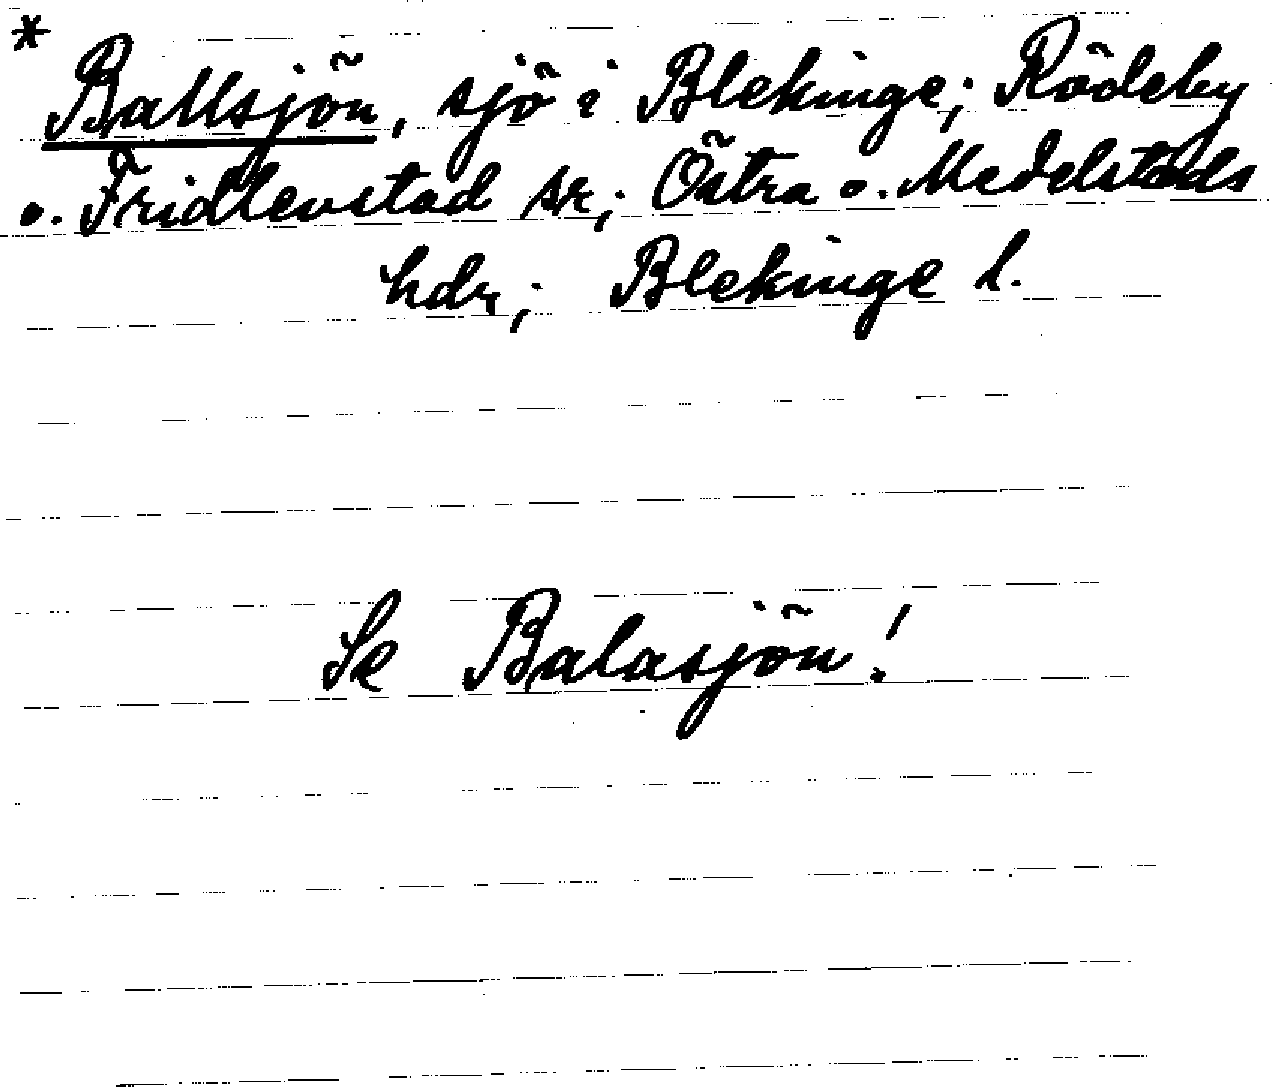 * Ballsjön, sjö i Blekinge; Rödeby
o. Fridlevstad sr; Östra o. Medelstads
hdr; Blekinge l.
Se Balasjön!